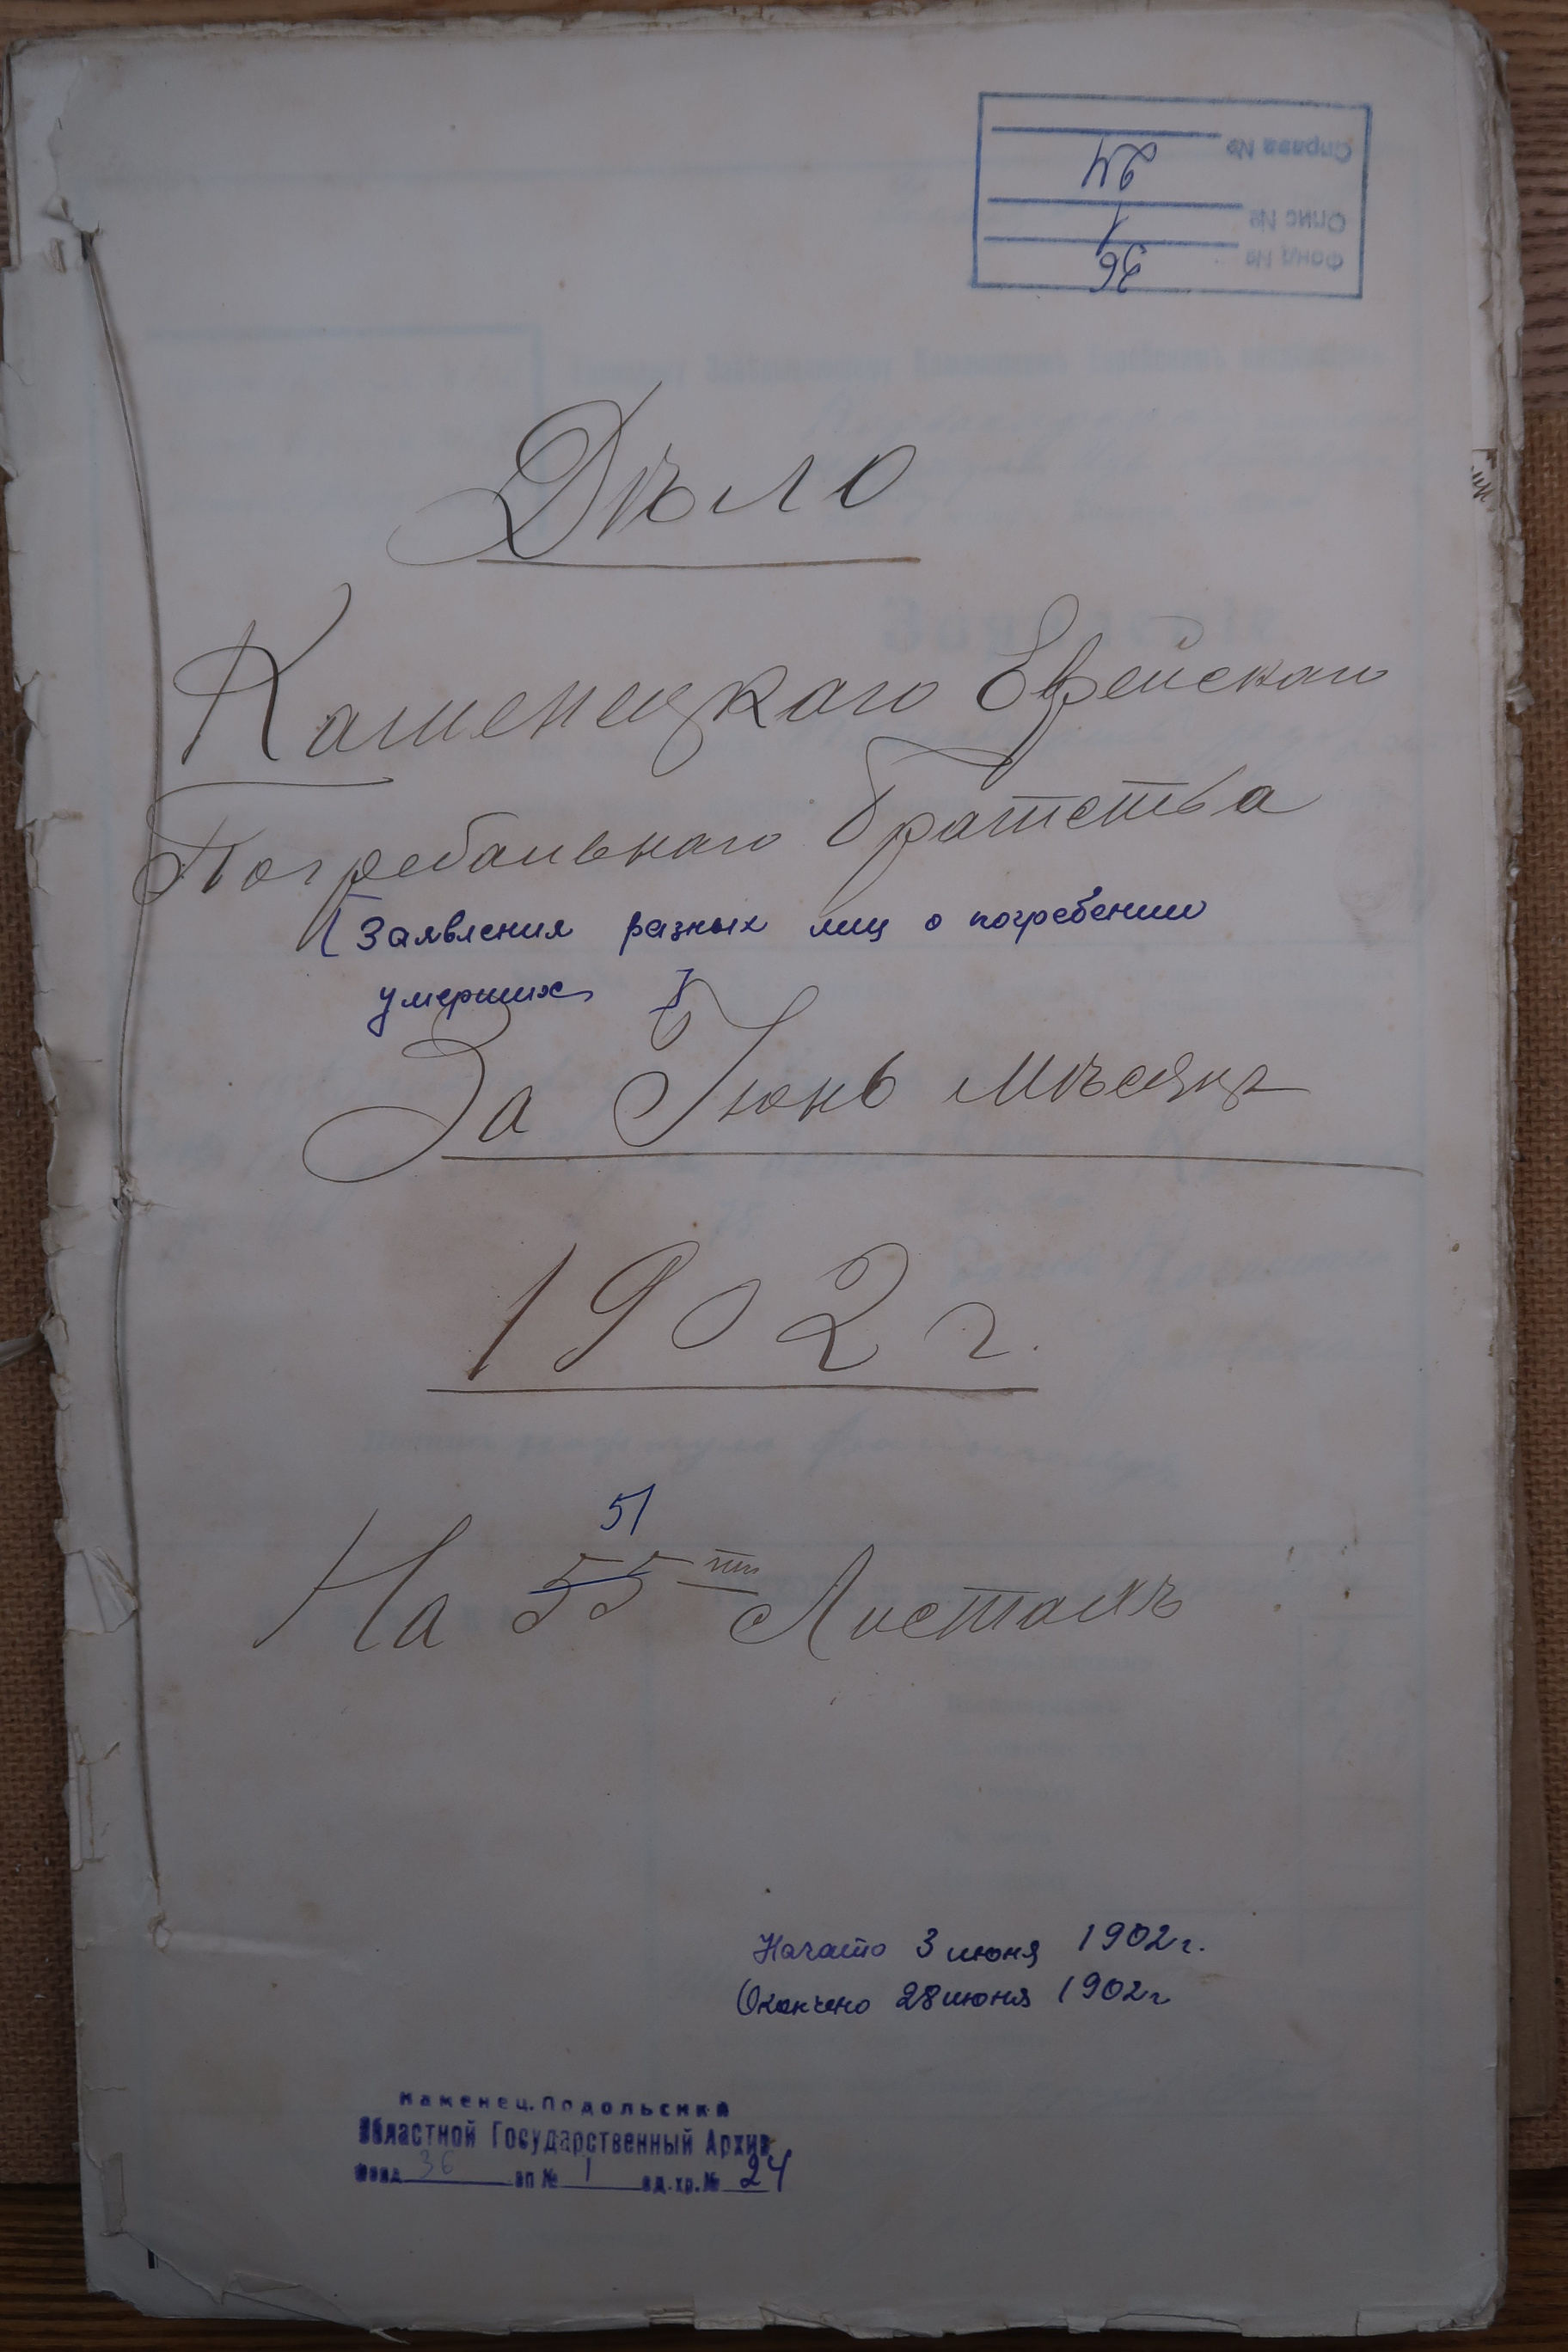 Фонд № 36
Опис № 1
Справа № 24
Дѣло
Каменецкаго Еврейскаго
Погребальнаго братства
[Заявления разных лиц о погребении
умерших]
За Іюнь мѣсяцъ
1902 г.
51
На 55 ти Листахъ
Начато 3 июня 1902 г.
Окончено 28 июня 1902 г
Каменец.Подольский
Областной Государственный Архив
Фонд 36 оп № 1 ед.хр.№ 24